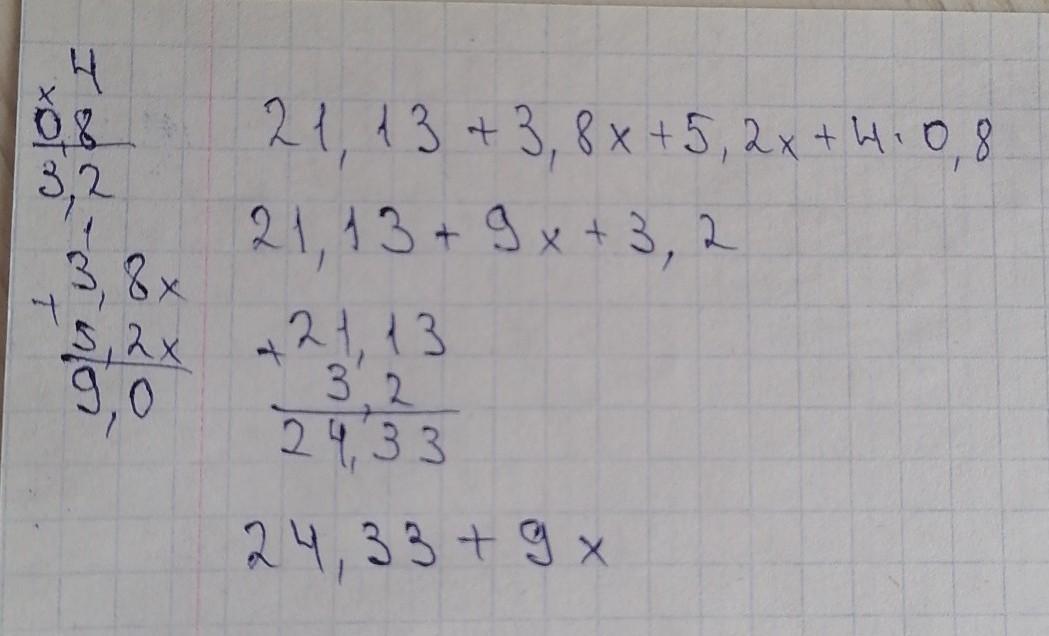 4
×
0,8
3,2
1
3,8x
+
5,2x
9,0
21,13 + 3,8x + 5,2x + 4 · 0,8
21,13 + 9x + 3,2
+ 21,13
3,2
24,33
24,33 + 9x